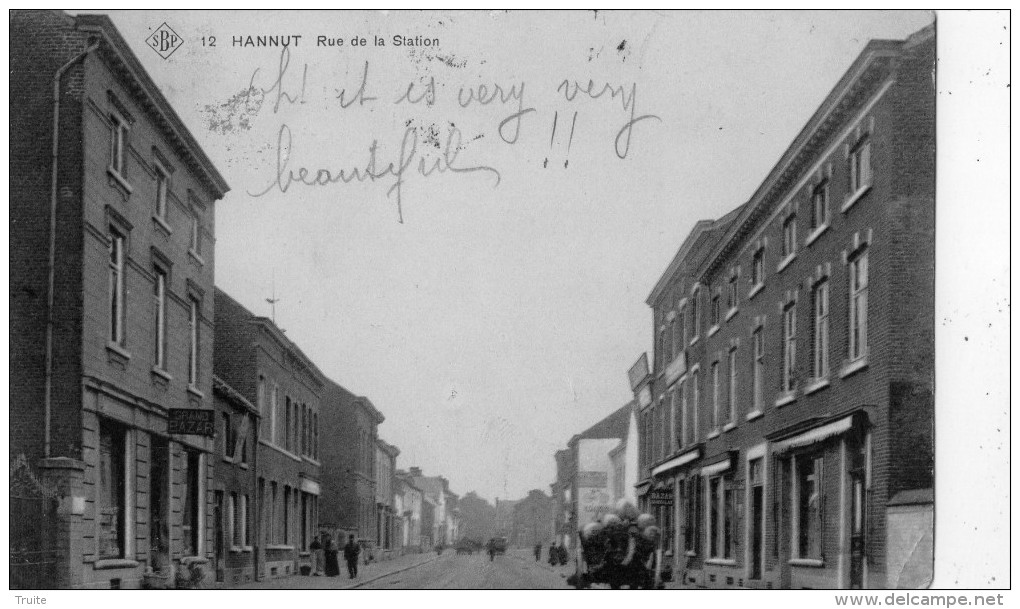 SBP 12 HANNUT Rue de la Station
oh! it is very very
beautiful !!
GRAND
BAZAR
BAZAR
SBP
Truite
Delcampe.net